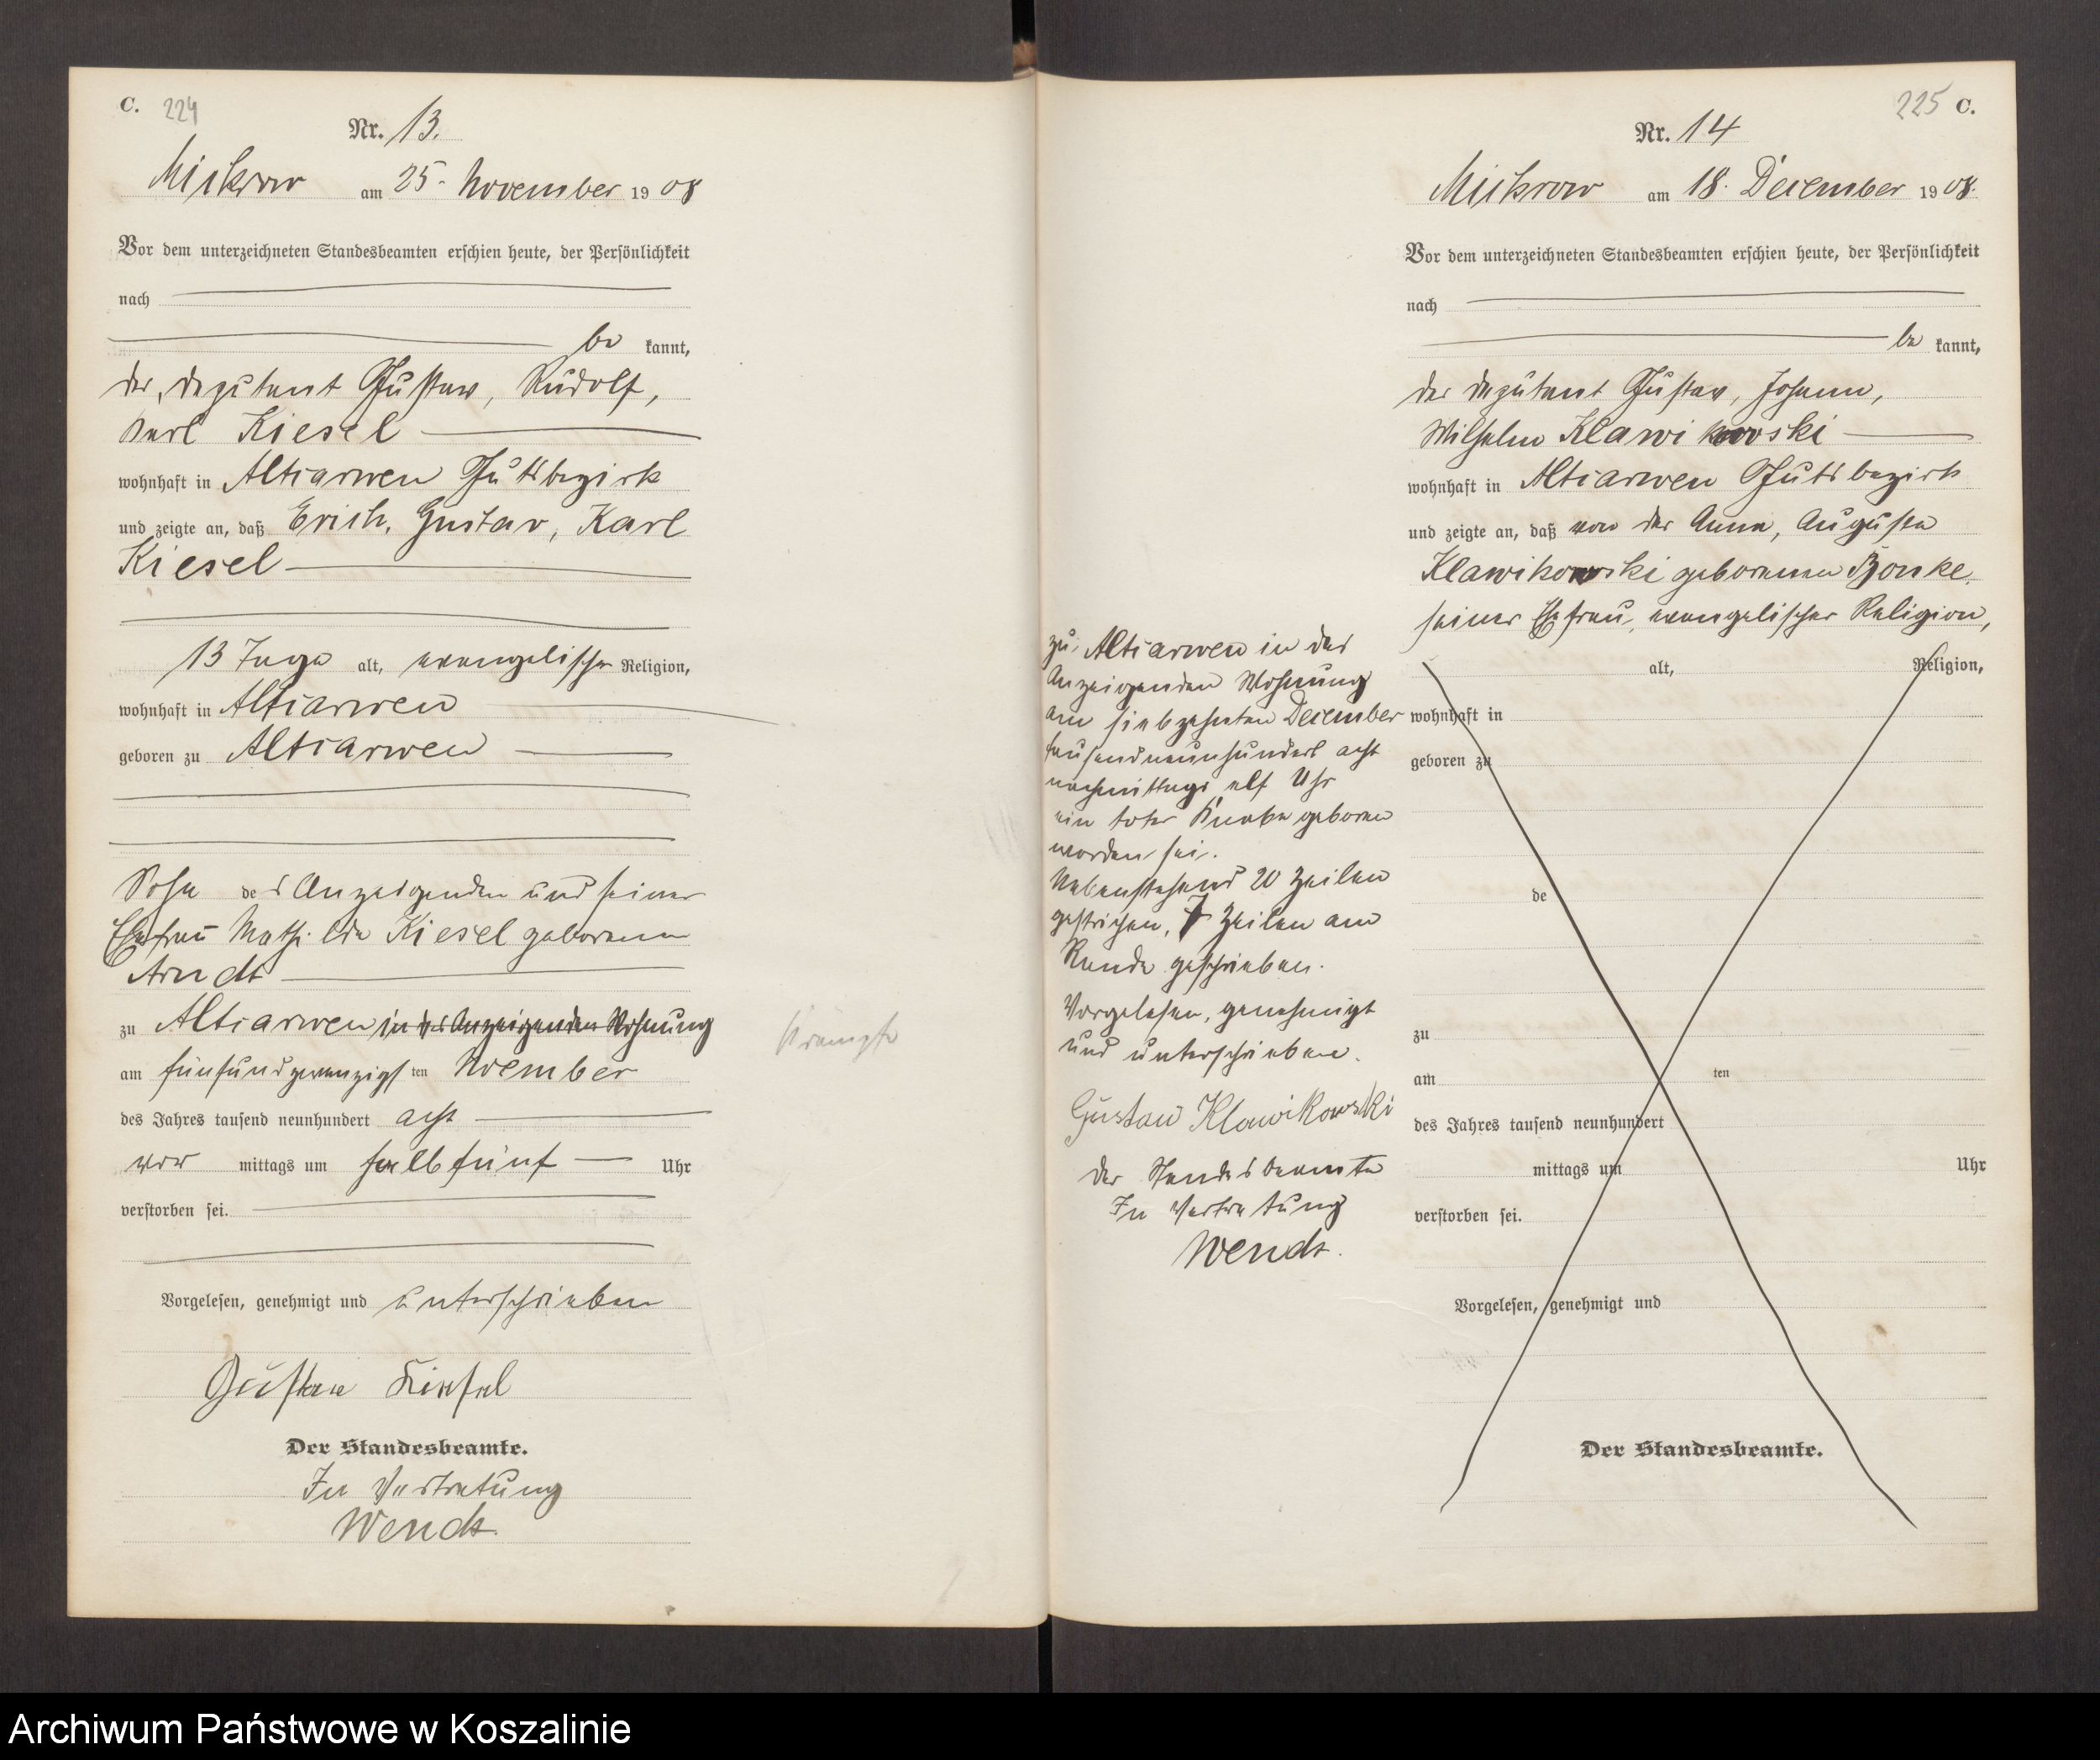 C. 224
Nr. 13.
Mickrow am 25. November 1908
Vor dem unterzeichneten Standesbeamten erschien heute, der Persönlichkeit
nach
be kannt,
der Deputant Gustav, Rudolf,
Karl Kiesel
wohnhaft in Altjarwen Gutsbezirk
und zeigte an, daß Erich, Gustav, Karl
Kiesel
13 Tage alt, evangelischer Religion,
wohnhaft in Altjarwen
geboren zu Altjarwen
Sohn des Anzeigenden und seiner
Ehefrau Mathilde Kiesel geborenen
Arndt
zu Altjarwen in des Anzeigenden Wohnung
am fünfundzwanzigsten November
des Jahres tausend neunhundert acht
vor mittags um halb fünf Uhr
verstorben sei.
Vorgelesen, genehmigt und unterschrieben
Gustav Kiesel
Der Standesbeamte.
In Vertretung
Wendt.
Krämpfe
225 C.
Nr. 14
Mickrow am 18. December 1908.
Vor dem unterzeichneten Standesbeamten erschien heute, der Persönlichkeit
nach
be kannt,
der Deputant Gustav, Johann,
Wilhelm Klawikowski
wohnhaft in Altjarwen Gutsbezirk
und zeigte an, daß von der Anna, Auguste
Klawikowski geborenen Bonke,
seiner Ehefrau, evangelischer Religion,
zu Altjarwen in des
Anzeigenden Wohnung
am siebzehnten December
tausendneunhundert acht
nachmittags elf Uhr
ein toter Knabe geboren
worden sei.
Nebenstehend 20 Zeilen
gestrichen, 7 Zeilen am
Rande geschrieben.
Vorgelesen, genehmigt
und unterschrieben.
Gustav Klawikowski
Der Standesbeamte
In Vertretung
Wendt.
alt, Religion,
wohnhaft in
geboren zu
de
zu
am ten
des Jahres tausend neunhundert
mittags um Uhr
verstorben sei.
Vorgelesen, genehmigt und
Der Standesbeamte.
Archiwum Państwowe w Koszalinie